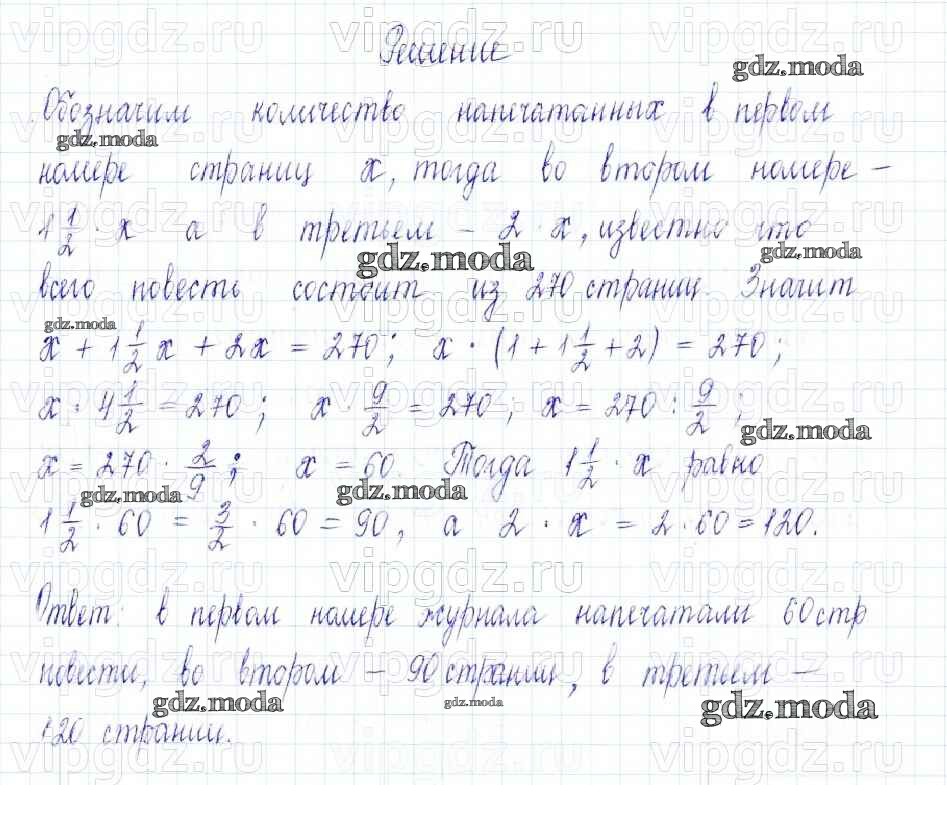 Решение
Обозначим количество напечатанных в первом
номере страниц x, тогда во втором номере –
1 1/2 · x а в третьем – 2 · x, известно что
всего повесть состоит из 270 страниц. Значит
x + 1 1/2 x + 2x = 270; x · (1 + 1 1/2 + 2) = 270;
x · 4 1/2 = 270; x · 9/2 = 270; x = 270 : 9/2;
x = 270 · 2/9; x = 60. Тогда 1 1/2 · x равно
1 1/2 · 60 = 3/2 · 60 = 90, а 2 · x = 2 · 60 = 120.
Ответ: в первом номере журнала напечатали 60 стр
повести, во втором – 90 страниц, в третьем –
120 страниц.
gdz.moda
gdz.moda
gdz.moda
gdz.moda
gdz.moda
gdz.moda
gdz.moda
gdz.moda
gdz.moda
gdz.moda
gdz.moda
vipgdz.ru
vipgdz.ru
vipgdz.ru